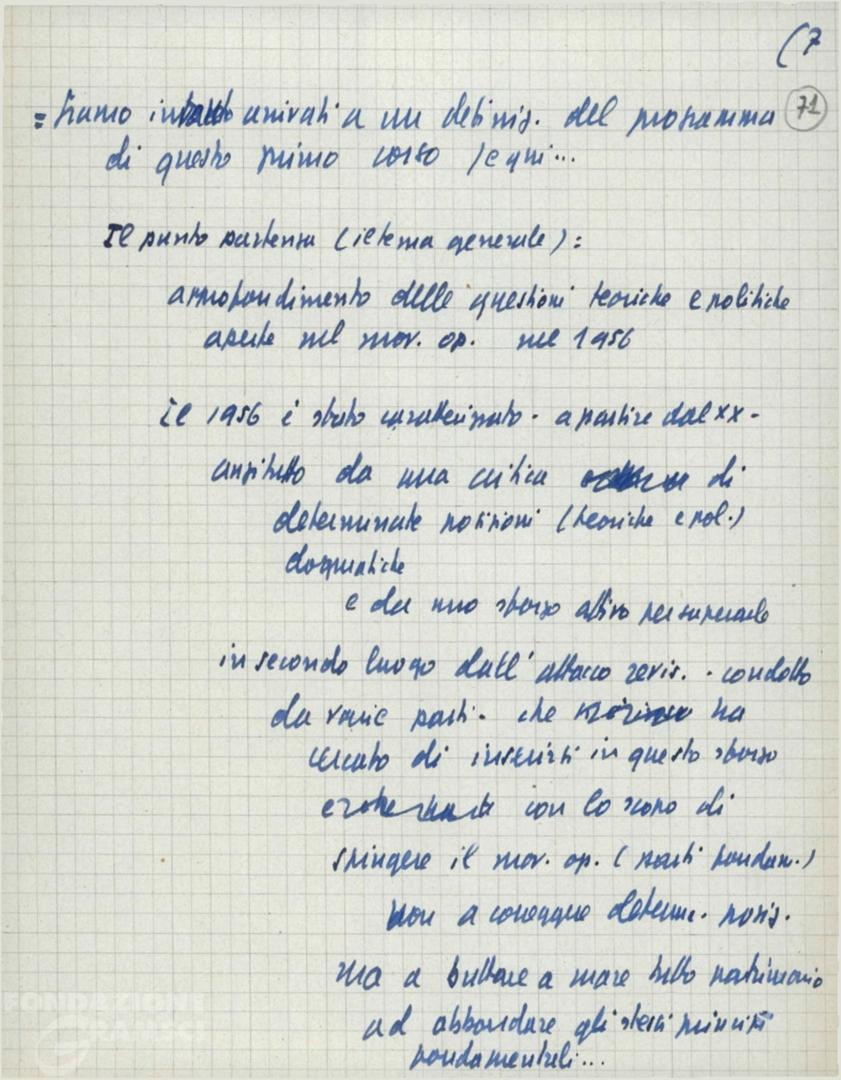 (7
71
= siamo arrivati a un definiz. del programma
di questo primo corso / e qui...
Il punto partenza (il tema generale):
approfondimento delle questioni teoriche e politiche
aperte nel mov. op. nel 1956
il 1956 è stato caratterizzato - a partire dal XX -
anzitutto da una critica di
determinate posizioni (teoriche e pol.)
dogmatiche
e da uno sforzo attivo per superarle
in secondo luogo dall'attacco revis. - condotto
da varie parti - che ha
cercato di inserirsi in questo sforzo
con lo scopo di
spingere il mov. op. (parti fondam.)
non a correggere determ. posiz.
ma a buttare a mare tutto patrimonio
ad abbandonare gli stessi principi
fondamentali...
FONDAZIONE